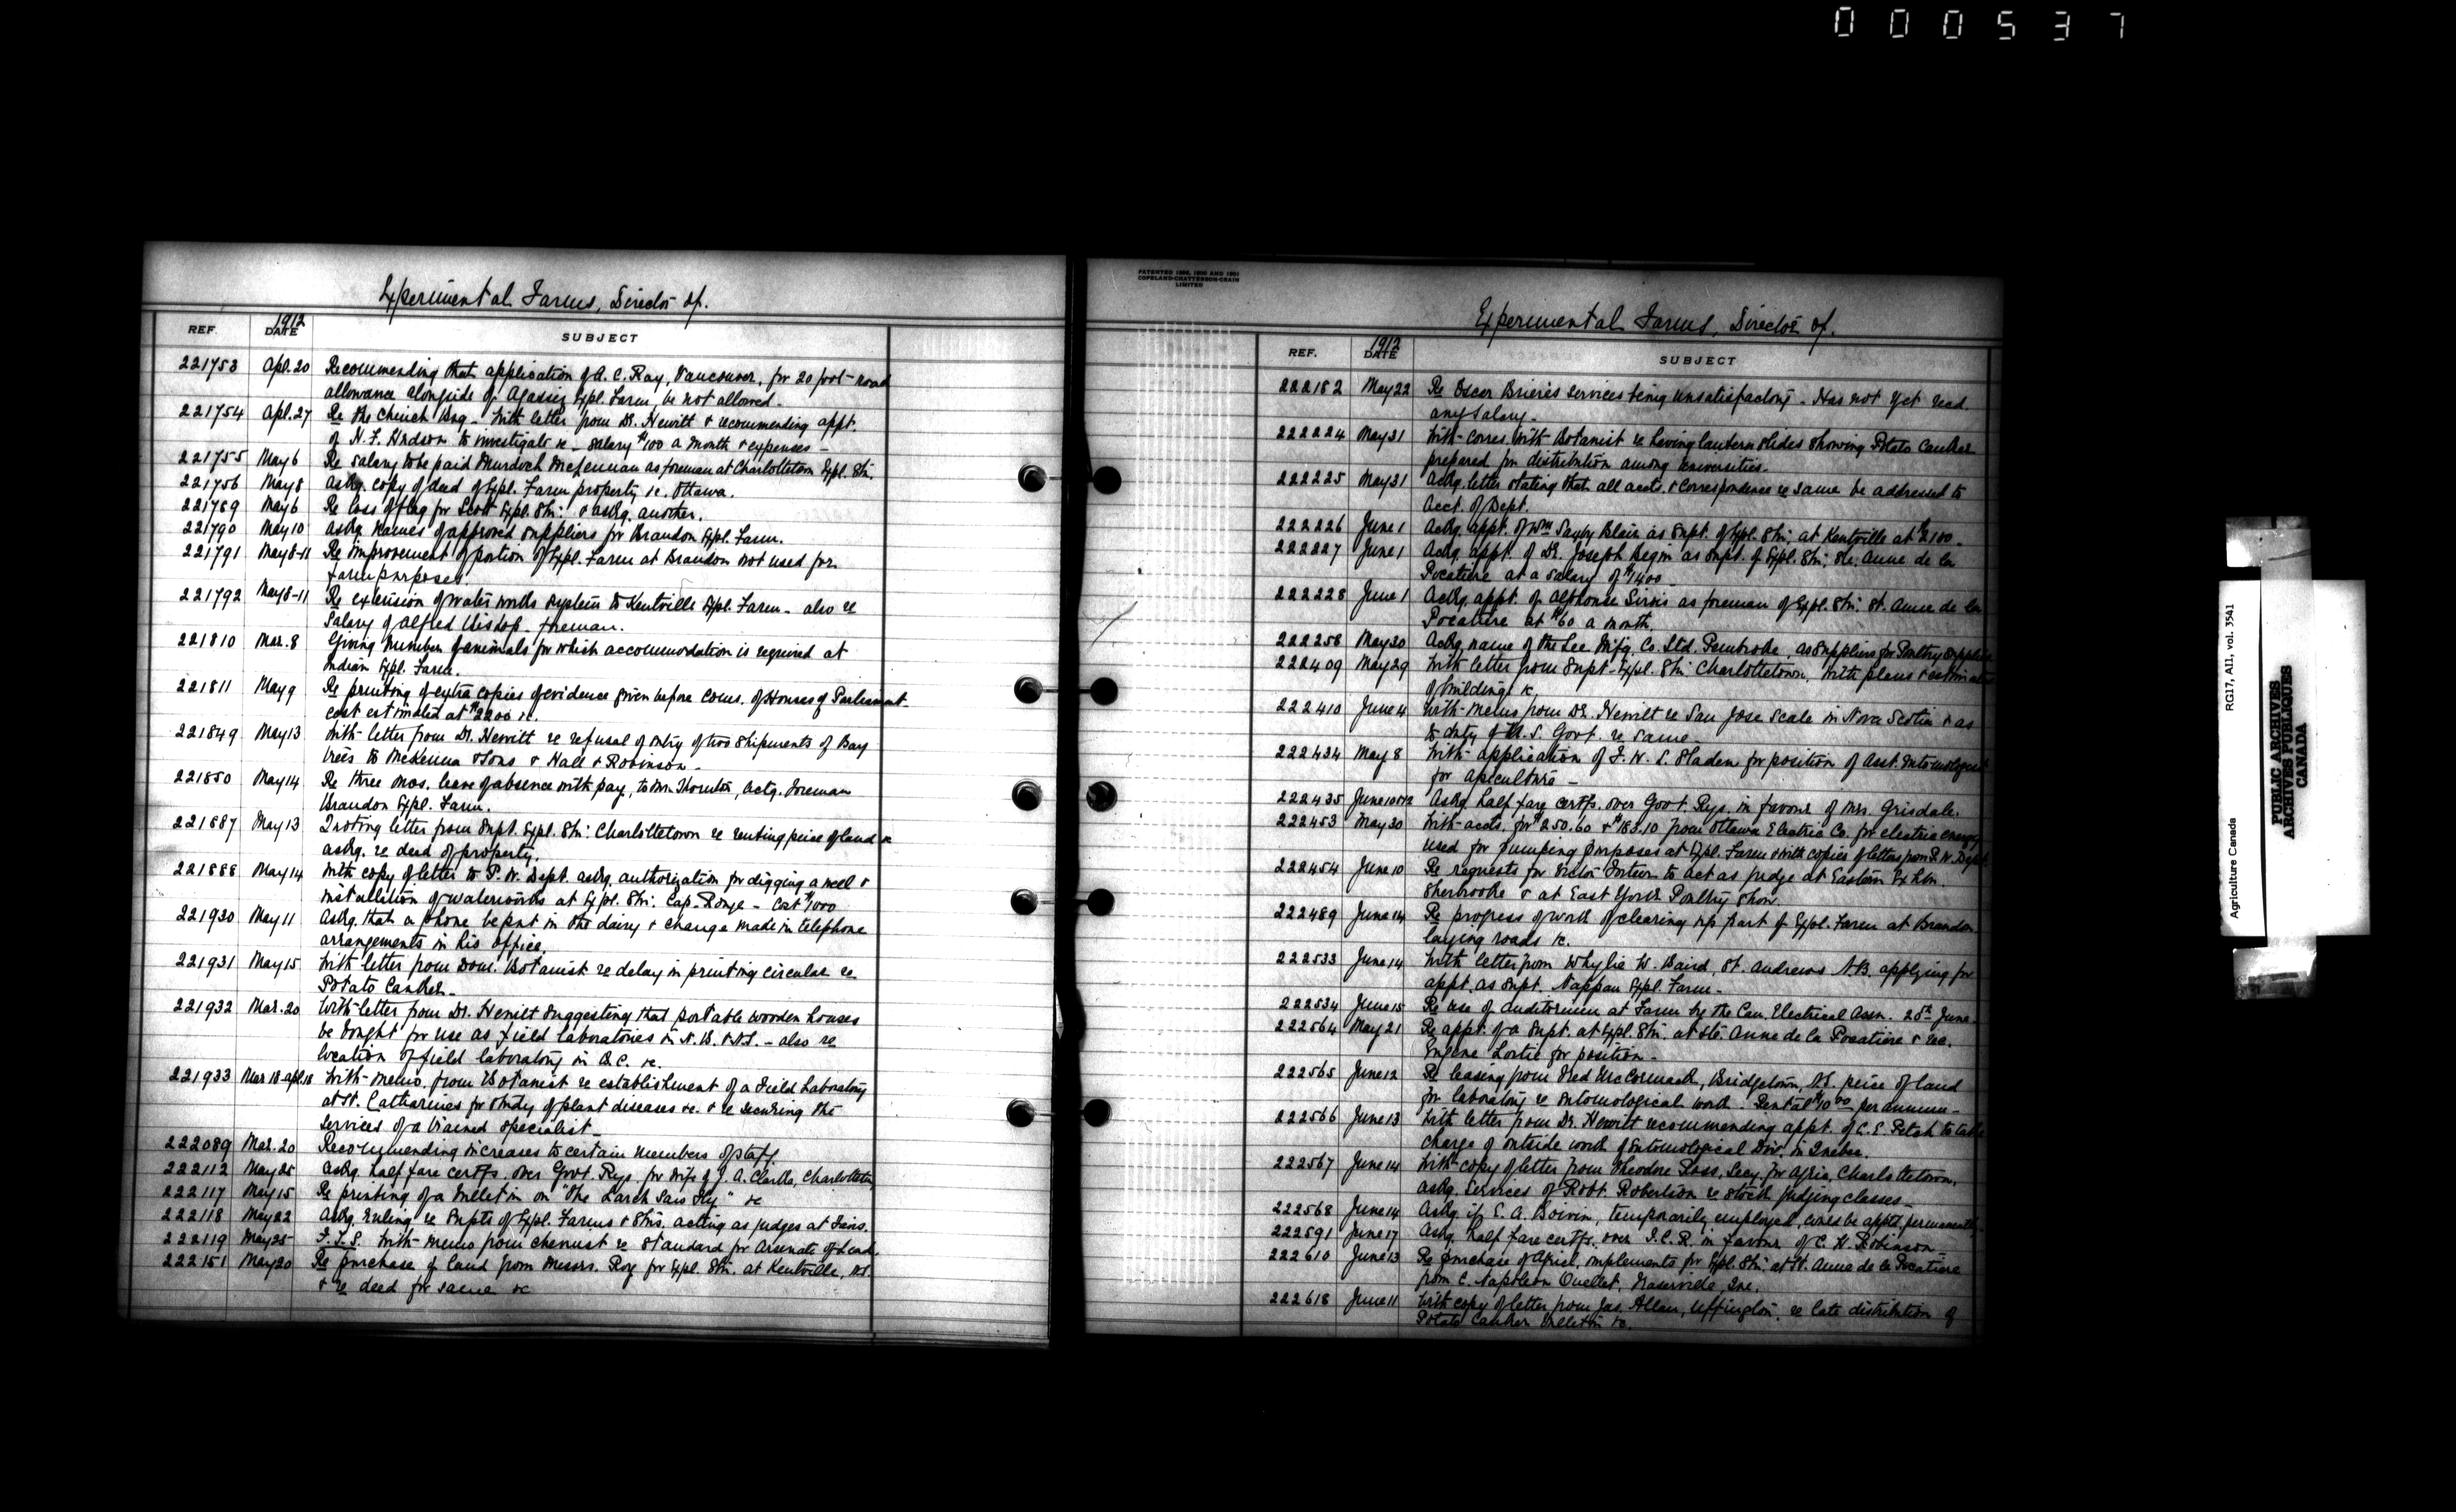 000537
Experimental Farms, Director of.
REF. 1912 DATE SUBJECT
221753 Apl. 20 Recommending that application of A. C. Ray, Vancouver, for 20 foot road
allowance alongside of Agassiz Expl. Farm, be not allowed.
221754 Apl. 27 Re the Chinch Bug - With letter from Dr. Hewitt & recommending appt.
of N. F. Hudson to investigate &c - salary $100 a month & expenses -
221755 May 6 Re salary to be paid Murdoch as foreman at Charlottetown Expl. Stn.
221756 May 8 Askg. copy of deed of Expl. Farm property &c. Ottawa.
221789 May 6 Re loss of flag for Scott Expl. Stn: & askg. another.
221790 May 10 Askg. names of approved suppliers for Brandon Expl. Farm.
221791 May 8-11 Re improvement of portion of Expl. Farm at Brandon not used for
farm purposes.
221792 May 8-11 Re extension of water works system to Kentville Expl. Farm - also re
Salary of Alfred Bishop - foreman.
221810 Mar. 8 Giving number of animals for which accommodation is required at
Indian Expl. Farm.
221811 May 9 Re printing of extra copies of evidence given before Coms. of Houses of Parliament
cost estimated at $2200 &c.
221849 May 13 With letter from Dr. Hewitt re refusal of entry of two shipments of Bay
trees to McKenna & Sons & Hall & Robinson -
221850 May 14 Re three mos. leave of absence with pay, to Mr. Thornton, actg. foreman
Brandon Expl. Farm.
221887 May 13 Quoting letter from Supt. Expl. Stn: Charlottetown re renting peice of land &
askg. re deed of property.
221888 May 14 With copy of letter to P. W. Dept. askg. authorization for digging a well &
installation of waterworks at Expl. Stn: Cap-Rouge - Cost $1000
221930 May 11 Askg. that a phone be put in the dairy & change made in telephone
arrangements in his office.
221931 May 15 With letter from Dom. Botanist re delay in printing circular re
Potato Canker -
221932 Mar. 20 With letter from Dr. Hewitt suggesting that portable wooden houses
be bought for use as field laboratories in N. B. & N.S. - also re
location of field laboratory in B.C. &c.
221933 Mar 18-apl. 18 With memo. from Botanist re establishment of a Field Laboratory
at St. Catharines for study of plant diseases &c. & re securing the
services of a trained specialist -
222089 Mar. 20 Recommending increases to certain members of staff.
222112 May 25 Askg. half fare certfs. over Govt. Rys. for wife of J. A. Clark, Charlottetown
222117 May 15 Re printing of a Bulletin on "The Larch Saw Fly" &c
222118 May 22 Askg. ruling re Supts of Expl. Farms & Stns. acting as judges at Fairs.
222119 May 25 With memo from chemist re standard for Arsenate of Lead.
222151 May 20 Re purchase of land from Messrs. Roy for Expl. Stn. at Kentville, N.S.
& re deed for same &c
PATENTED 1896, 1900 AND 1901
COPELAND-CHATTERSON-CRAIN
LIMITED
Experimental Farms, Director of.
REF. 1912 DATE SUBJECT
222182 May 22 Re Oscar services being unsatisfactory - Has not yet recd.
any salary -
222224 May 31 With corres. with Botanist re having lantern slides showing Potato Canker
prepared for distribution among Universities -
222225 May 31 Ackg. letter stating that all accts. & correspondence re same be addressed to
Acct. of Dept.
222226 June 1 Ackg. appt. of Wm Saxby Blair as Supt. of Expl. Stn: at Kentville at $2100 -
222227 June 1 Ackg. appt. of Dr. Joseph Begin as Supt. of Expl. Stn; Ste. Anne de la
Pocatiere at a salary of $1400 -
222228 June 1 Ackg. appt. of Alphonse Sirois as foreman of Expl. Stn: St. Anne de la
Pocatiere at $60 a month.
222258 May 20 Ackg. name of the Lee Mfg. Co. Ltd. Pembroke, as suppliers for Poultry supplies
222409 May 29 With letter from Supt - Expl. Stn: Charlottetown, with plans & estimates
of buildings &c.
222410 June 4 With memo from Dr. Hewitt re San Jose Scale in Nova Scotia & as
to duty of U. S. Govt. re same -
222434 May 8 With application of F. W. L. Sladen for position of Asst. Entomologist
for apiculture -
222435 June 10&12 Askg. half fare certfs. over Govt. Rys. in favour of Mrs. Grisdale.
222453 May 30 With accts. for $250.60 & $183.10 from Ottawa Electric Co. for electric energy
used for pumping purposes at Expl. Farm & with copies of letters from P. W. Dept.
222454 June 10 Re requests for Victor Fortier to act as judge at Eastern Exhbn.
Sherbrooke & at East York Poultry Show
222489 June 14 Re progress of work of clearing up part of Expl. Farm at Brandon
laying roads &c.
222533 June 14 With letter from Whylie W. Baird, St. Andrews N.B. applying for
appt. as Supt. Nappan Expl. Farm -
222534 June 15 Re use of auditorium at Farm by the Can. Electrical Assn. 20th June -
222564 May 21 Re appt. of a Supt. at Expl. Stn. at Ste. Anne de la Pocatiere & rec.
Eugene Lortie for position -
222565 June 12 Re leasing from Fred McCormack, Bridgetown, N.S. peice of land
for laboratory re Entomological work - Rental $10.00 per annum -
222566 June 13 With letter from Dr. Hewitt recommending appt. of C. E. Petch to take
charge of outside work of Entomological Div. in Quebec.
222567 June 14 With copy of letter from Theodore Ross, Secy. for Agric, Charlottetown,
askg. services of Robt. Robertson re stock judging classes -
222568 June 14 Askg. if E. A. Boivin, temporarily employed, could be apptd. permanently -
222591 June 17 Askg. half fare certfs. over I.C.R. in favour of C. H. Robinson -
222610 June 13 Re purchase of Agricl. implements for Expl. Stn: at St. Anne de la Pocatiere
from C. Napoleon Ouellet, Fraserville, Que.
222618 June 11 With copy of letter from Jas. Allan, Uffington, re late distribution of
Potato Canker Bulletin &c.
Agriculture Canada RG17, A11, vol. 3541
PUBLIC ARCHIVES
ARCHIVES PUBLIQUES
CANADA